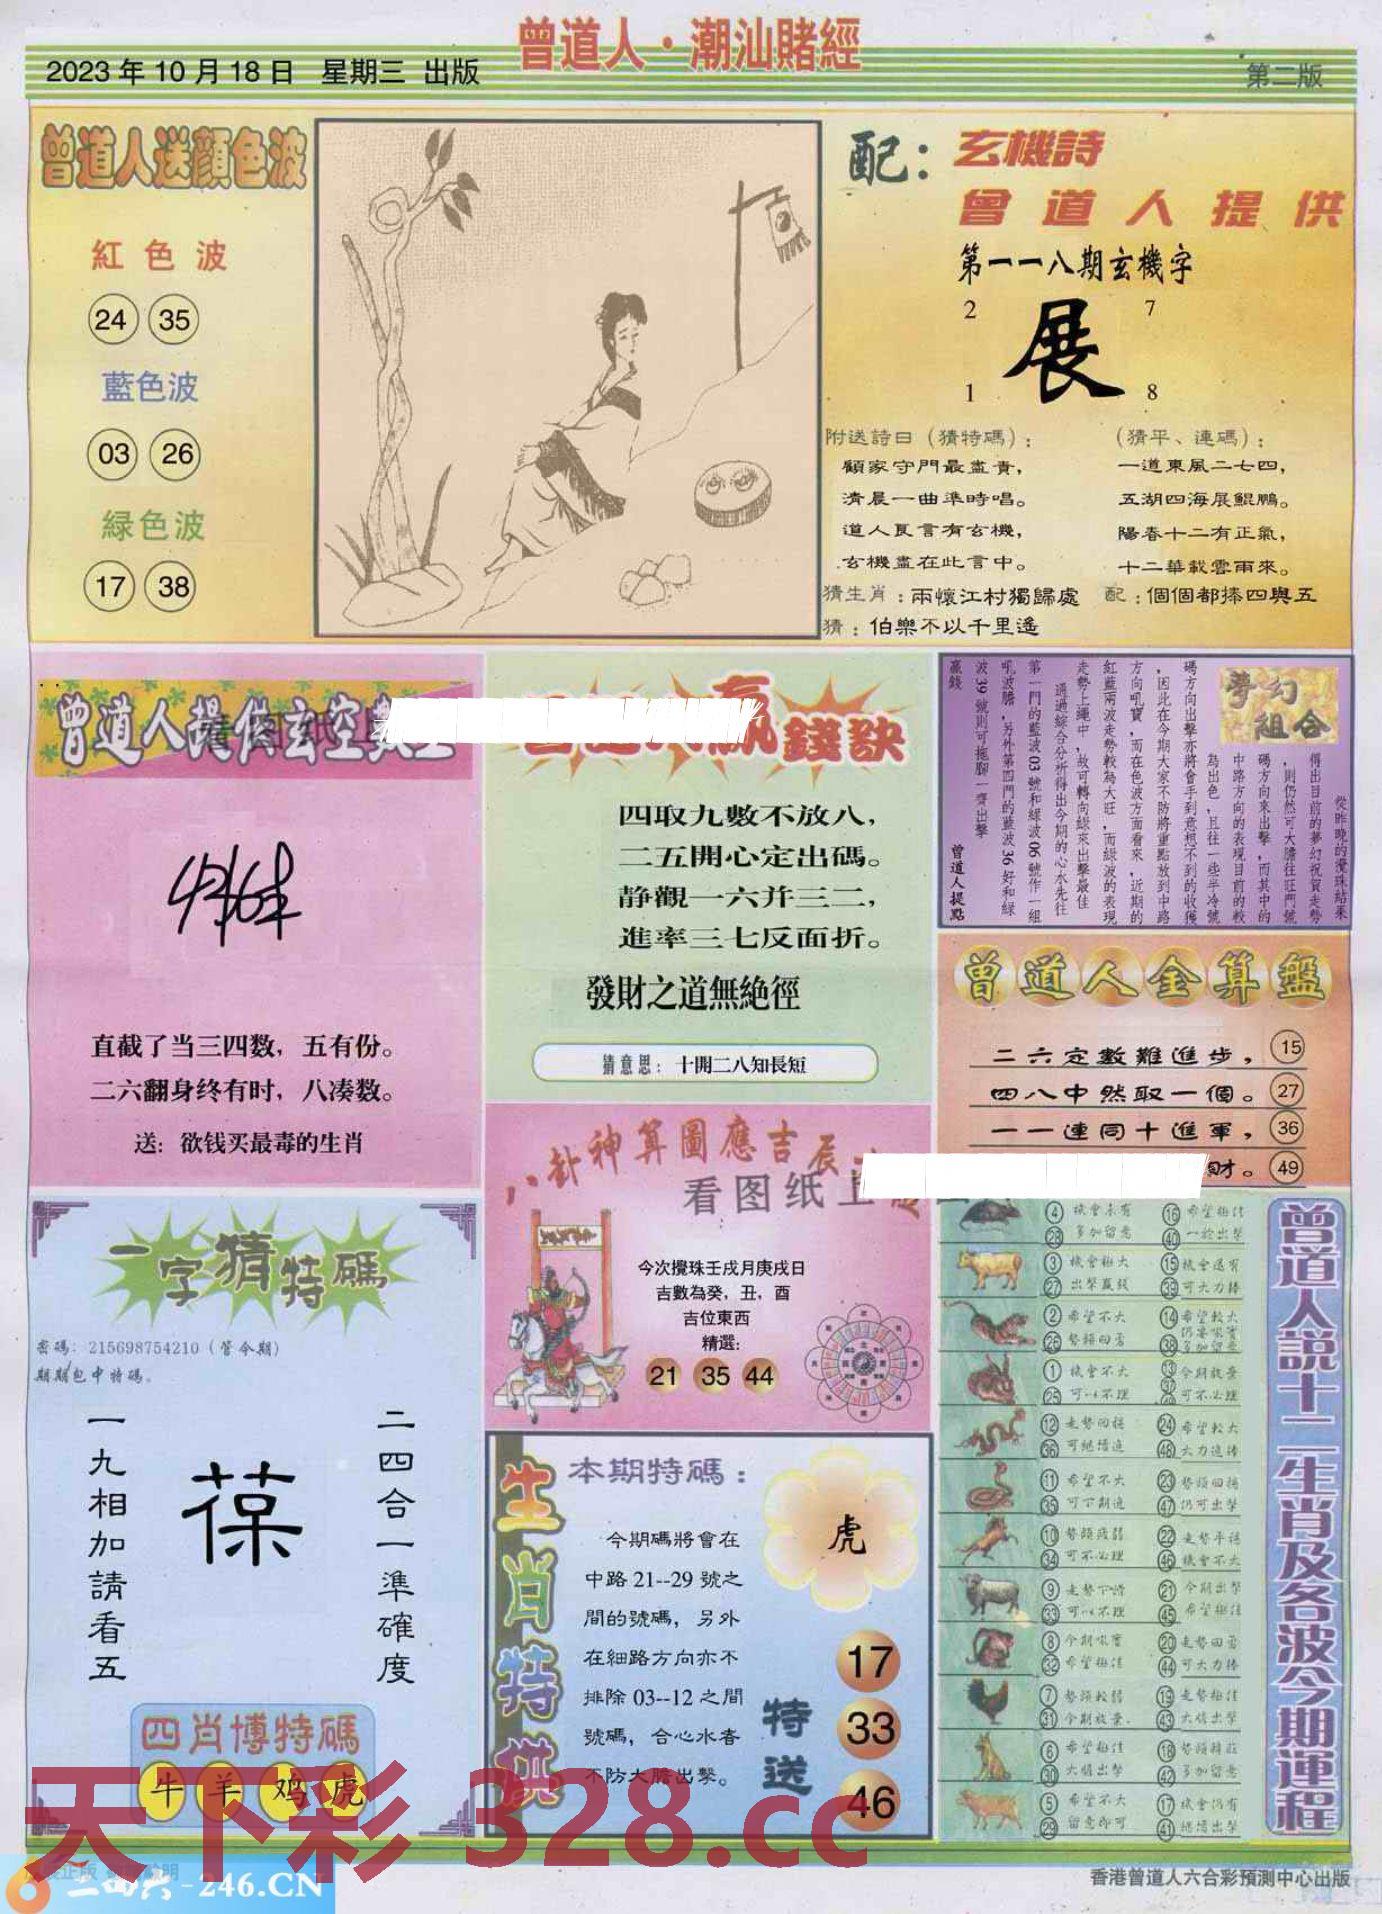 曾道人·潮汕賭經
2023年10月18日 星期三 出版
第二版
曾道人送顔色波
紅色波
24 35
藍色波
03 26
緑色波
17 38
配：玄機詩
曾道人提供
第一一八期玄機字
2 7
展
1 8
附送詩曰（猜特碼）：
顧家守門最盡責，
清晨一曲準時唱。
道人良言有玄機，
玄機盡在此言中。
猜生肖：兩懷江村獨歸處
猜：伯樂不以千里遙
（猜平、連碼）：
一道東風二七四，
五湖四海展鯤鵬。
陽春十二有正氣，
十二華載雲雨來。
配：個個都捧四與五
曾道人提供玄空數
直截了当三四数，五有份。
二六翻身终有时，八凑数。
送：欲钱买最毒的生肖
贏錢訣
四取九數不放八，
二五開心定出碼。
静觀一六并三二，
進率三七反面折。
發財之道無絶徑
猜意思：十開二八知長短
夢幻組合
從昨晚的攪珠結果
得出目前的夢幻祝賀走勢
，則仍然可大膽往旺門號
碼方向來出擊，而其中的
中路方向的表現目前的較
為出色，且往一些半冷號
碼方向出擊亦將會手到意想不到的收獲
，因此在今期大家不防將重點放到中路
方向吼寶，而在色波方面看來，近期的
紅藍兩波走勢較為大旺，而緑波的表現
走勢上繩中，故可轉向緑來出擊最佳
通過綜合分析得出今期的心水先往
第一門的藍波03號和緑波06號作一組
吼波膽，另外第四門的藍波36好和緑
波39號則可拖腳一齊出擊
贏錢
曾道人提點
曾道人金算盤
二六定數難進步， 15
四八中然取一個。 27
一一連同十進軍， 36
財。 49
八卦神算圖應吉辰
看图纸上
今次攪珠壬戌月庚戌日
吉數為癸，丑，酉
吉位東西
精選：
21 35 44
一字猜特碼
密碼：215698754210（管今期）
期期包中特碼。
二四合一準確度
葆
一九相加請看五
四肖博特碼
牛 羊 鸡 虎
生肖特供
本期特碼：
今期碼將會在
中路21--29號之
間的號碼，另外
在細路方向亦不
排除03--12之間
號碼，合心水者
不防大膽出擊。
虎
特送
17
33
46
曾道人説十二生肖及各波今期運程
4 機會未有 16 希望極佳
28 多加留意 40 一於出擊
3 機會極大 15 機會還有
27 出擊贏錢 39 可大力捧
2 希望不大 14 希望較大
26 勢頭回勇 38
1 機會不大 13 今期放棄
25 可以不理 可不必理
12 走勢回穩 24 希望較大
36 可絕增進 48 大力追捧
11 希望不大 23 勢頭回穩
35 可下期追 47 仍可出擊
10 勢頭疲弱 22 走勢平穩
34 可不必理 46 機會不大
9 走勢下滑 21 今期出擊
33 可以不理 45 希望極佳
8 今期吼寶 20 走勢回勇
32 希望極佳 44 可大力捧
7 勢頭較弱 19 走勢極佳
31 今期放棄. 43 大膽出擊
6 希望極佳 18
30 大膽出擊 42 多加留意
5 希望不大 17 機會仍有
29 留意即可 41 絕增出擊
天下彩 328.cc
二四六-246.CN
香港曾道人六合彩預測中心出版